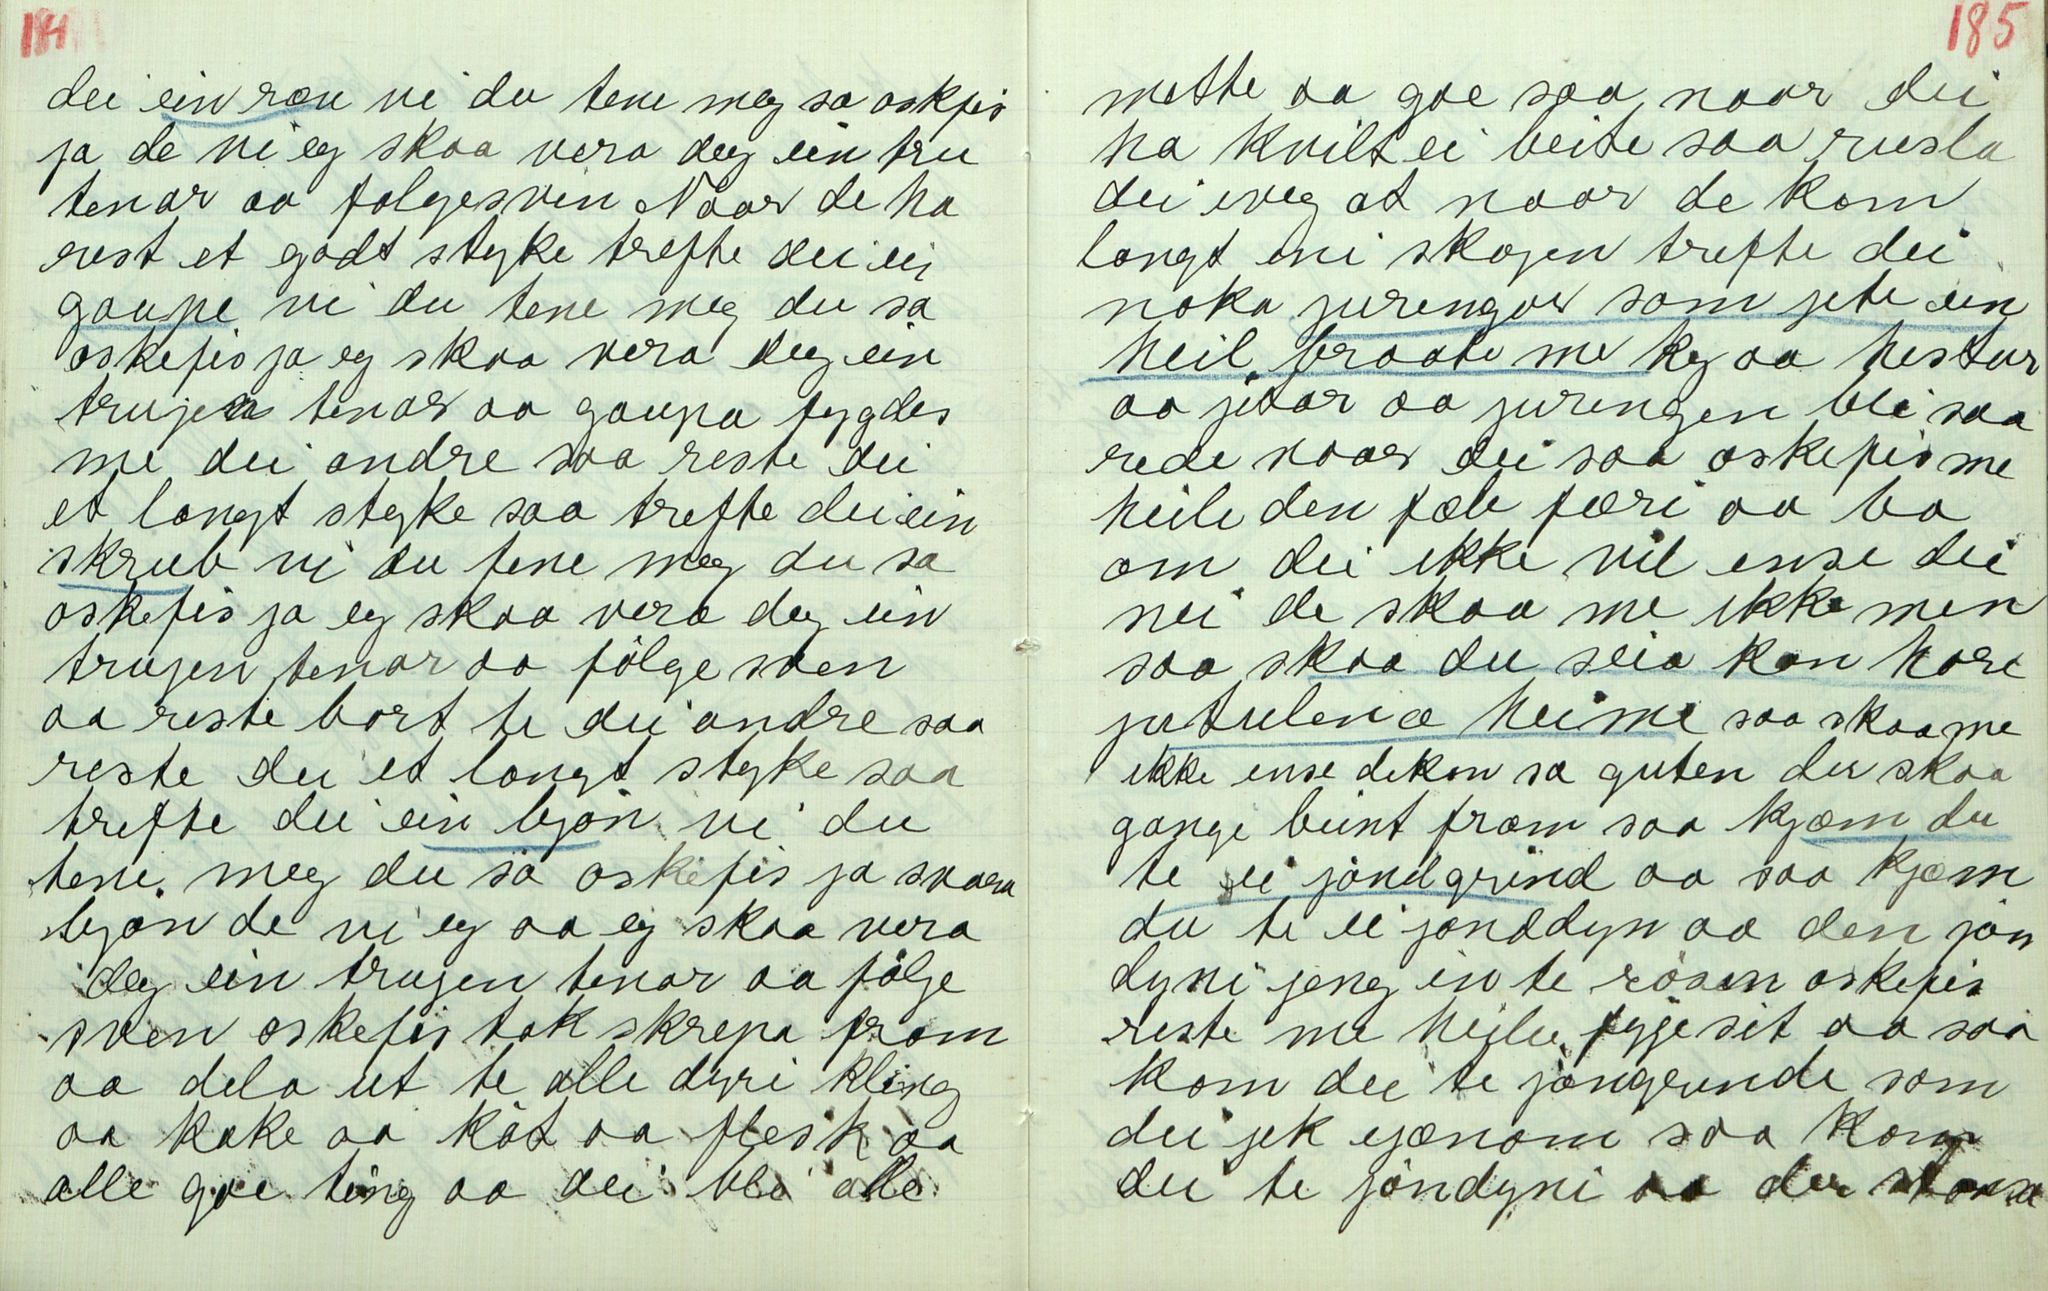 184
dei ein ræv vi du tene meg sa oskefis
ja de vi eg skaa vera deg ein tru
tenar aa folgesvin Naar de ha
rest et godt styke trefte dei ei
gaupe vi du tene meg du sa
oskefis ja eg skaa vera deg ein
trujen tenar aa gaupa fygdes
me dei andre saa reste dei
et longt styke saa trefte dei ein
skrub vi du tene meg du sa
oskefis ja eg skaa vera deg ein
trujen tenar aa fölge sven
aa reste bort te dei andre saa
reste dei et longt styke saa
trefte dei ein byön vi du
tene meg du sa oskefis ja svara
byön de vi eg aa eg skaa vera
deg ein trujen tenar aa fölge
sven oskefis tok skrepa from
aa dela ut te alle dyri kling
aa kake aa köt aa flesk aa
alle goe ting aa dei blei alle
185
mette aa goe saa naar dei
ha kvilt ei beite saa rusla
dei iveg at naar de kom
langt ini skogen trefte dei
noka jurengar som jete ein
heil braate me ky aa hestar
aa jetar aa jurengen blei saa
rede naar dei saa oskefis me
heile den fæle færi aa ba
om dei ikke vil ense dei
nei de skaa me ikke men
saa skaa du seia kan hore
jutulen æ heime saa skaa me
ikke ense dekon sa guten du skaa
gange beint fram saa kjæm du
te ei jöndgrind aa saa kjæm
du te ei jönddyn aa den jön
dyni jeng in te rösen oskefis
reste me heile fygje sit aa saa
kom dei te jöngrinde som
dei jek gjænom saa kom
dei te jöndyni aa der stansa